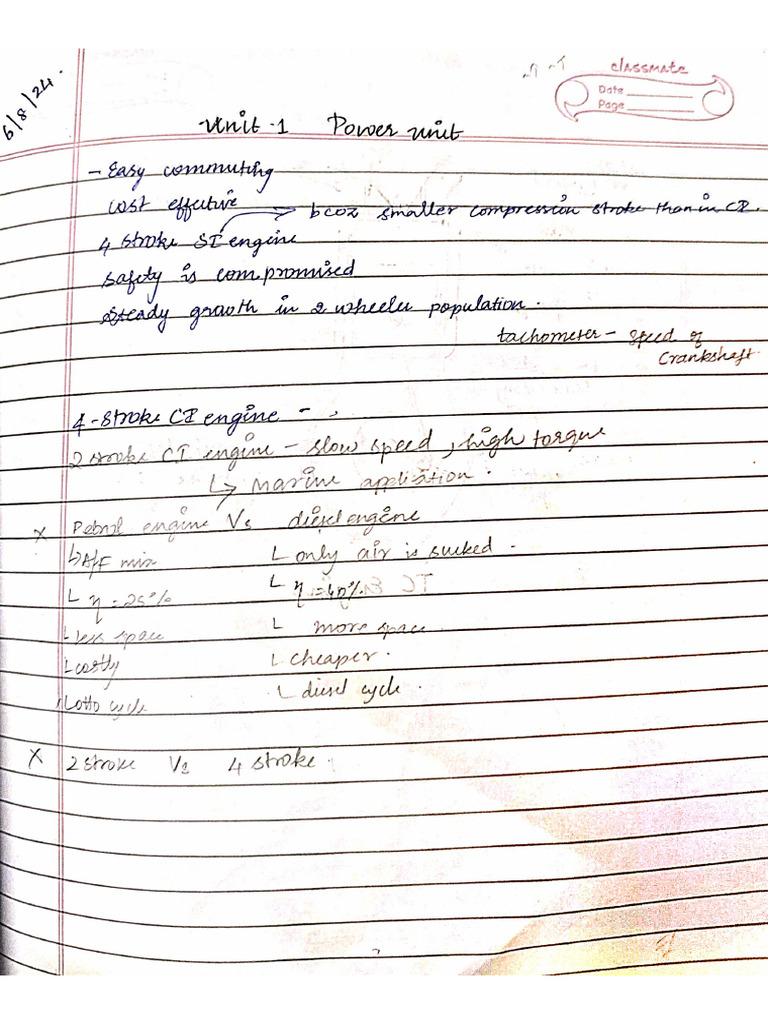 6/8/24.
classmate
Date
Page
Unit-1 Power unit
- Easy commuting
cost effective
4 stroke SI engine → bcoz smaller compression stroke than in CI.
safety is compromised
steady growth in 2 wheeler population.
tachometer - speed of
crankshaft
4-stroke CI engine -
2 stroke CI engine - slow speed, high torque
↳ marine application.
x Petrol engine Vs diesel engine
↳ A/F mix └ only air is sucked.
└ η = 25% └ η = 40%
└ less space └ more space.
└ costly └ cheaper.
└ otto cycle └ diesel cycle.
x 2 stroke Vs 4 stroke